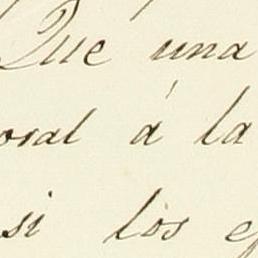 Que una
oral á la
si los